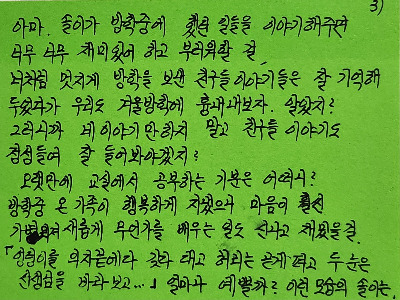 3)
아마. 솔이가 방학중에 했던 일들을 이야기해주면
너무 너무 재미있어 하고 부러워할 걸.
너처럼 멋지게 방학을 보낸 친구들이야기들은 잘 기억해
두었다가 우리도 겨울방학에 흉내내보자. 알았지?
그러니까 네이야기만하지 말고 친구들 이야기도
정성들여 잘 들어봐야겠지?
오랫만에 교실에서 공부하는 기분은 어떠니?
방학중 온가족이 행복하게 지냈으니 마음이 훨씬
가벼워져 새롭게 무언가를 배우는 일도 신나고 재밌을걸.
「엉덩이를 의자끝에다 갖다 대고 허리는 곧게 펴고 두 눈은
선생님을 바라보고...」 얼마나 예쁠까? 이런 모습의 솔이는.